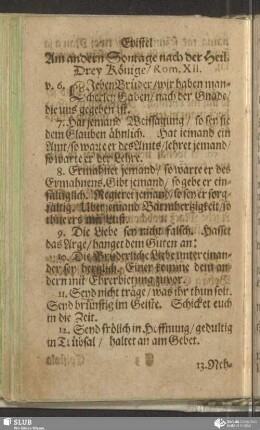 Epistel
Am andern Sontage nach der Heil.
Drey Könige/ Rom. XII.
v. 6. Lieben Brüder/ wir haben man-
cherley Gaben/ nach der Gnade/
die uns gegeben ist.
7. Hat jemand Weissagung/ so sey sie
dem Glauben ähnlich. Hat iemand ein
Amt/ so warte er des Amts/ lehret jemand/
so warte er der Lehre.
8. Ermahnet jemand/ so warte er des
Ermahnens. Gibt jemand/ so gebe er ein-
fältiglich. Regieret jemand/ so sey er sorg-
fältig. Ubet jemand Barmhertzigkeit/ so
thue ers mit Lust.
9. Die Liebe sey nicht falsch. Hasset
das Arge/ hanget dem Guten an.
10. Die Brüderliche Liebe unter einan-
der sey hertzlich. Einer komme dem an-
dern mit Ehrerbietung zuvor.
11. Seyd nicht träge/ was ihr thun solt.
Seyd brünstig im Geiste. Schicket euch
in die Zeit.
12. Seyd frölich in Hoffnung/ gedultig
in Trübsal/ haltet an am Gebet.
13. Neh-
SLUB